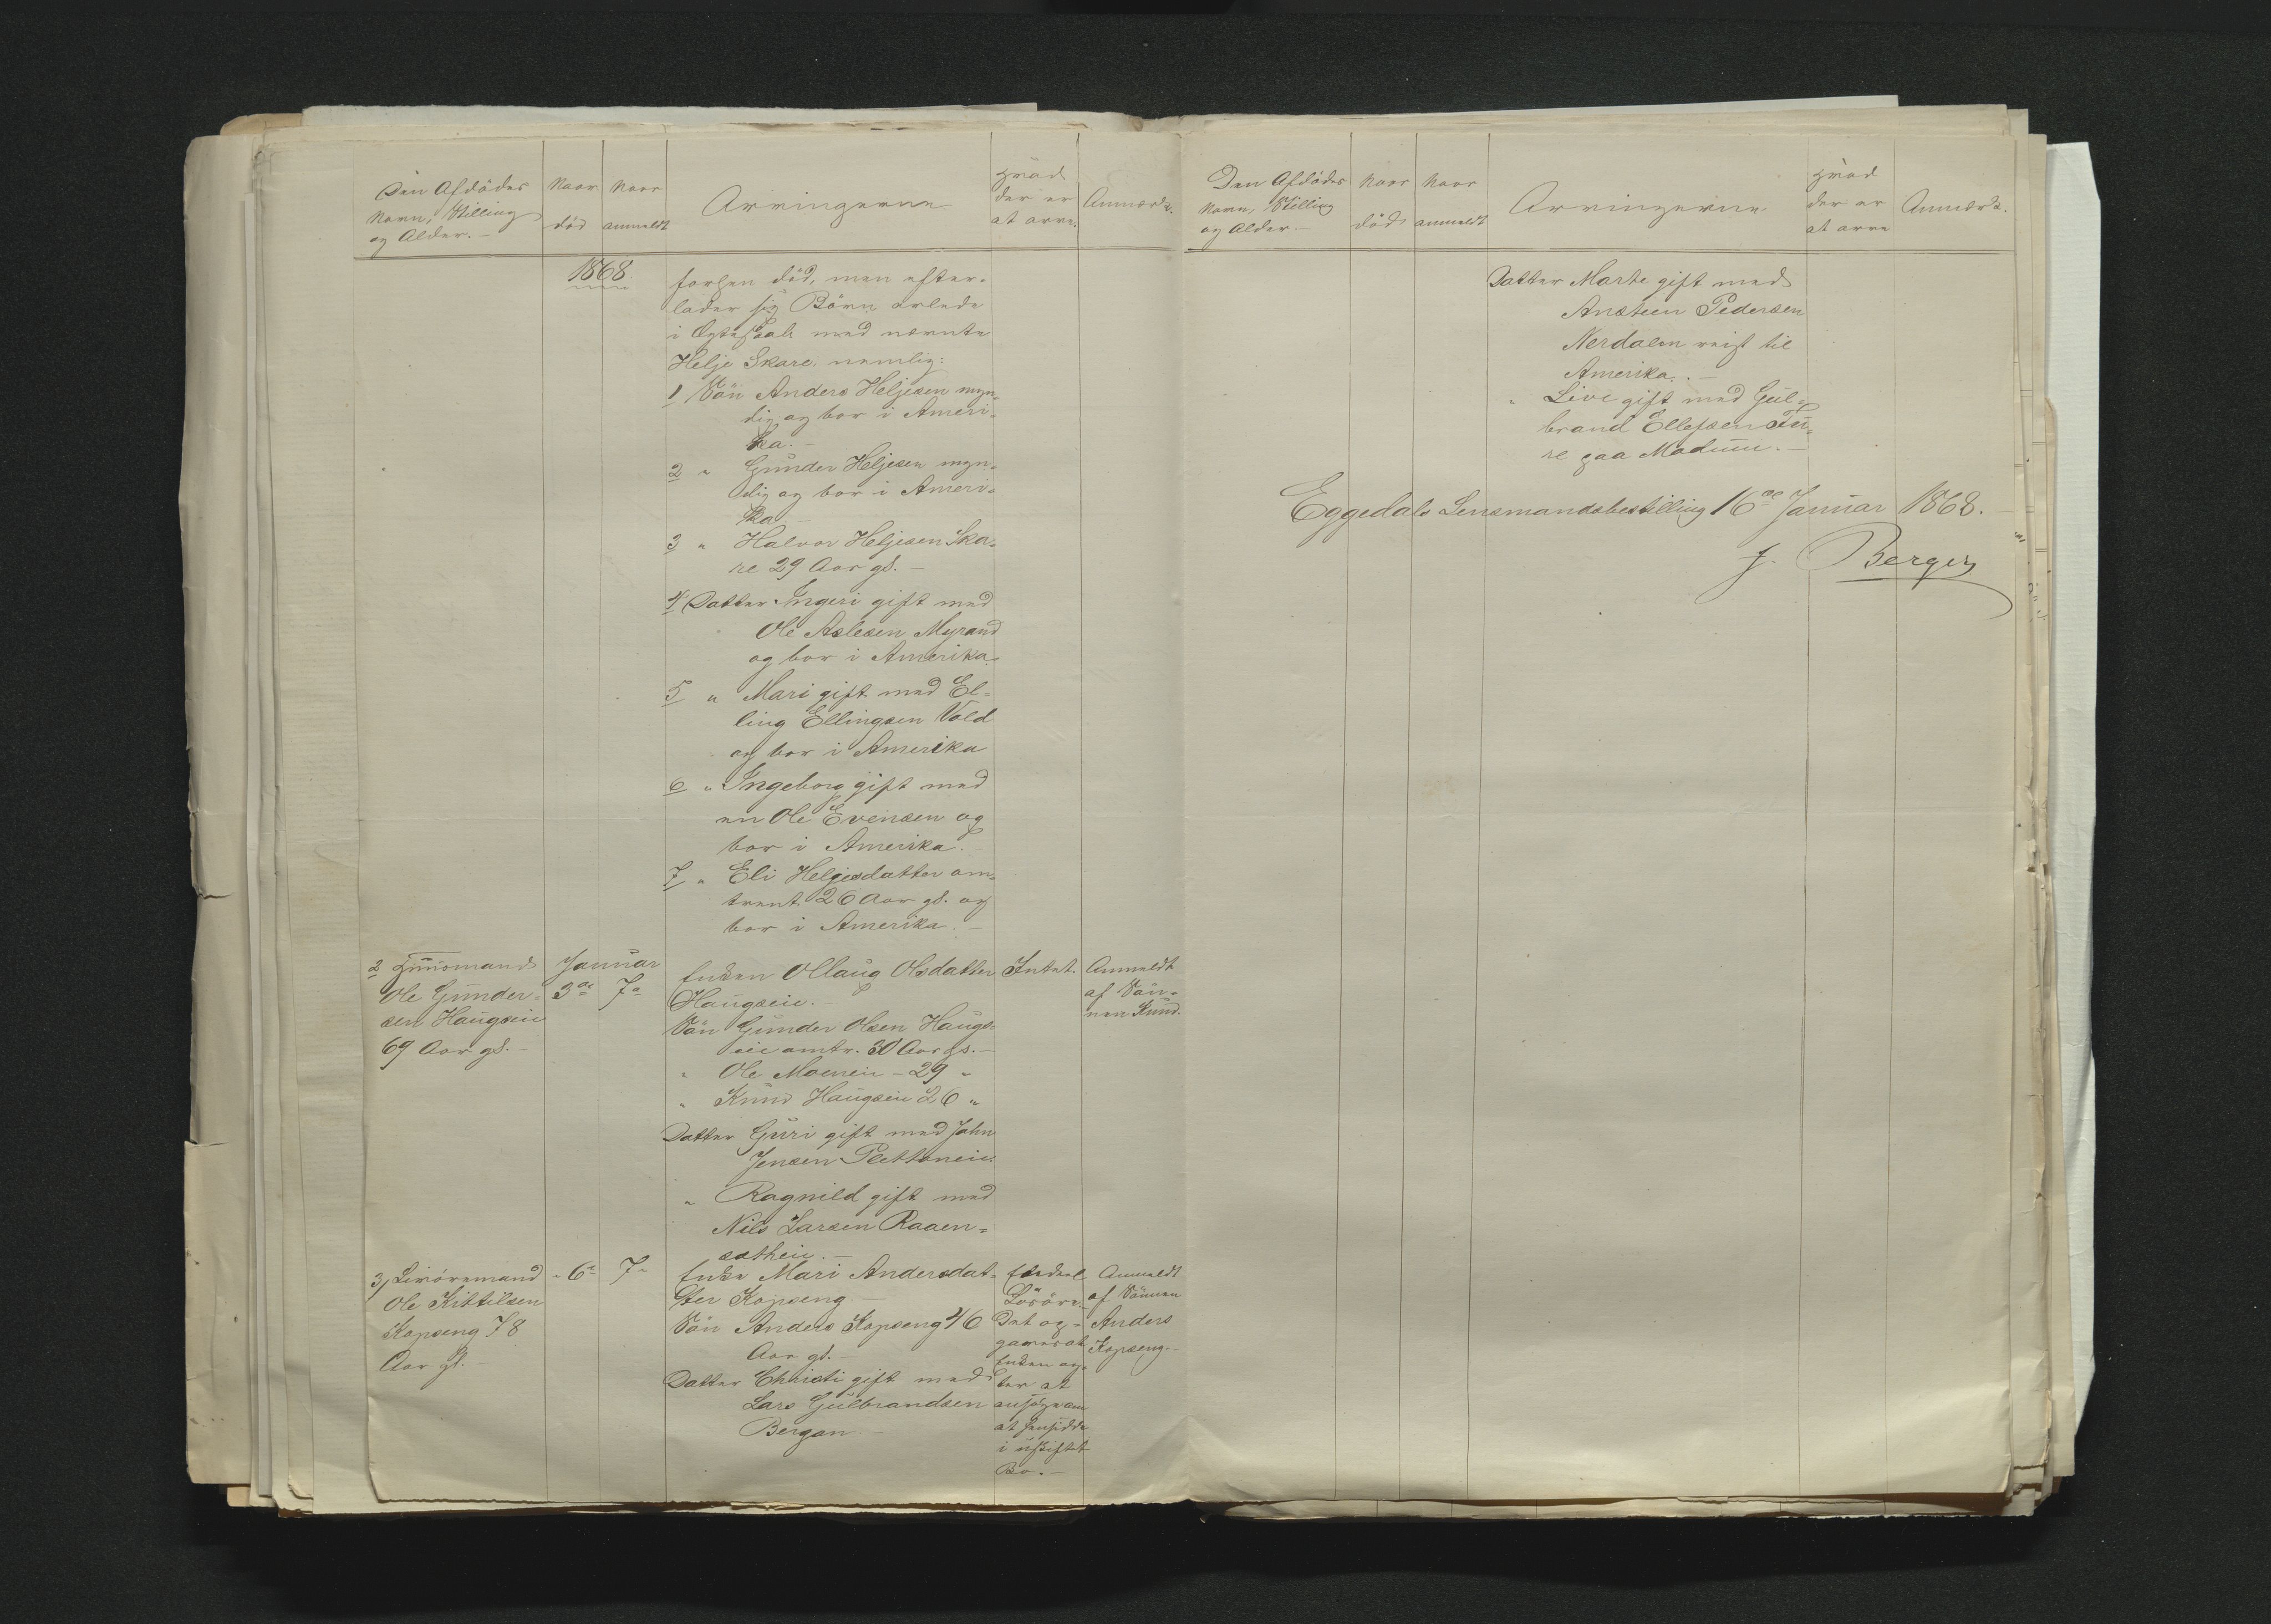 Den Afdödes
Navn, Stilling
og Alder.-
Naar
död
Naar
anmeldt
Arvingerne
Hvad
der er
at arve.
Anmærk.
1868.
forhen död, men efter-
lader sig Börn avlede
i Ægteskab med nævnte
Helje Skare, nemlig:
1 Sön Anders Heljesen myn-
dig og bor i Ameri-
ka.-
2 " Gunder Heljesen myn-
dig og bor i Ameri-
ka.-
3 " Halvor Heljesen Ska-
re 29 Aar gl.-
4 Datter Ingeri gift med
Ole Aslesen Myrand
og bor i Amerika.
5 " Mari gift med El-
ling Ellingsen Vold
og bor i Amerika
6 " Ingeborg gift med
en Ole Evensen og
bor i Amerika.-
7 " Eli Helgesdatter om-
trent 26 Aar gl. og
bor i Amerika.-
2 Huusmand
Ole Gunder-
sen Haugseie
69 Aar gl.-
Januar
3de 7de
Enken Ollaug Olsdatter
Haugseie.-
Sön Gunder Olsen Haugs-
eie omtr. 30 Aar gl.-
" Ole Moeneie - 29 "
" Knud Haugseie 26 "
Datter Guri gift med John
Jensen Pletteneie.
" Ragnild gift med
Nils Larsen Raaen-
satheie.-
Intet.
Anmeldt
af Søn-
nen Knud.
3, Livöremand
Ole Kittilsen
Kopseng 78
Aar gl.-
" 6te 7de
Enke Mari Andersdat-
ter Kopseng.-
Sön Anders Kopseng 46
Aar gl.-
Datter Christi gift med
Lars Gulbrandsen
Bergan.-
Endeel
Lösöre.-
Det op-
gaves at
Enken ag-
ter at
ansöge om
at hensidde
i uskiftet
Bo.-
Anmeldt
af Sönnen
Anders
Kopseng.-
Den Afdödes
Navn, Stilling
og Alder.-
Naar
död
Naar
anmeldt
Arvingerne
Hvad
der er
at arve
Anmærk.
Datter Marte gift med
Ansteen Pedersen
Nerdalen reist til
Amerika.-
" Live gift med Gul-
brand Ellefsen
re paa Modum.-
Eggedals Lensmandsbestilling 16de Januar 1868.
J. Berger